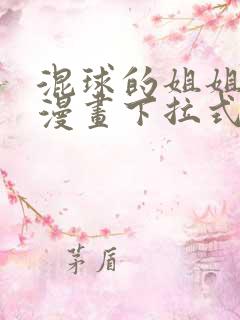 混球的姐姐
漫畫下拉式
茅盾